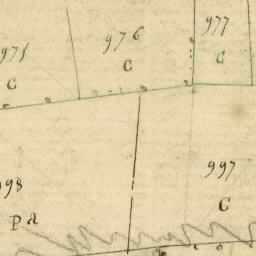 977
976
975
C
C
C
997
998
C
Pa